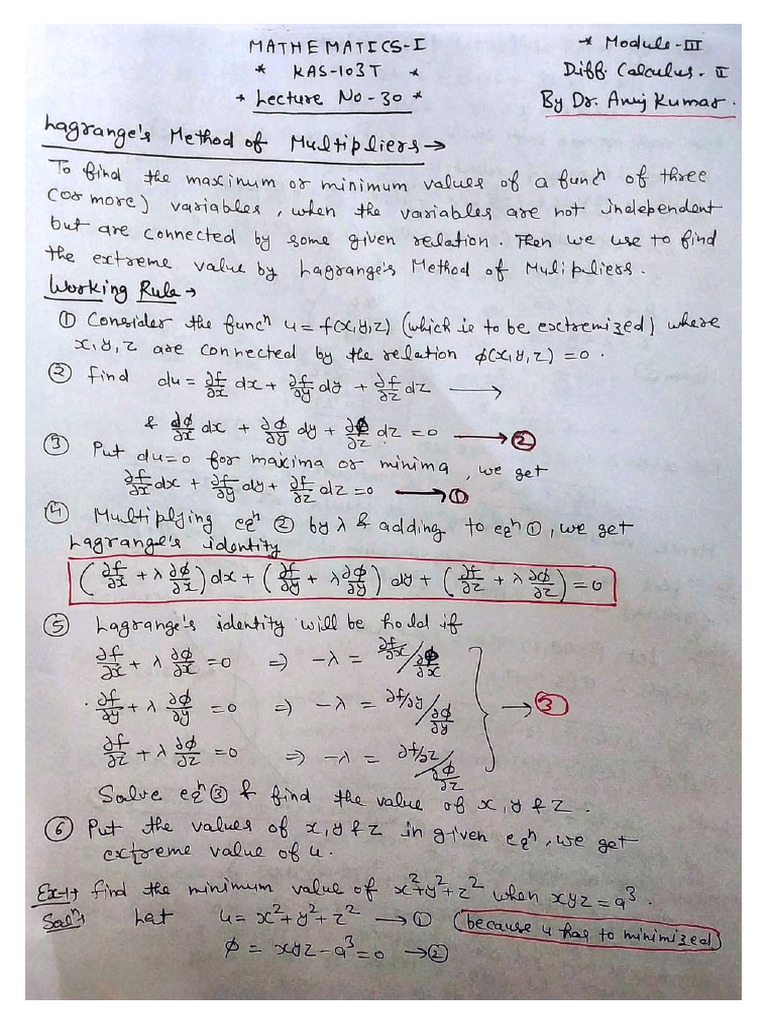 MATHEMATICS-I
* KAS-103T *
* Lecture No-30 *
* Module-III
Diff. Calculus-II
By Dr. Anuj Kumar.
Lagrange's Method of Multipliers →
To find the maximum or minimum values of a funcⁿ of three
(or more) variables, when the variables are not independent
but are connected by some given relation. Then we use to find
the extreme value by Lagrange's Method of Mulipliers.
Working Rule →
① Consider the funcⁿ u = f(x,y,z) (which is to be extremized) where
x,y,z are connected by the relation ϕ(x,y,z) = 0.
② find du = ∂f/∂x dx + ∂f/∂y dy + ∂f/∂z dz ⟶
& ∂ϕ/∂x dx + ∂ϕ/∂y dy + ∂ϕ/∂z dz = 0 ⟶ ②
③ Put du=0 for maxima or minima, we get
∂f/∂x dx + ∂f/∂y dy + ∂f/∂z dz = 0 ⟶ ①
④ Multiplying eqⁿ ② by λ & adding to eqⁿ ①, we get
Lagrange's identity
(∂f/∂x + λ ∂ϕ/∂x) dx + (∂f/∂y + λ ∂ϕ/∂y) dy + (∂f/∂z + λ ∂ϕ/∂z) = 0
⑤ Lagrange's identity will be hold if
∂f/∂x + λ ∂ϕ/∂x = 0 ⇒ -λ = ∂f/∂x / ∂ϕ/∂x
∂f/∂y + λ ∂ϕ/∂y = 0 ⇒ -λ = ∂f/∂y / ∂ϕ/∂y → ③
∂f/∂z + λ ∂ϕ/∂z = 0 ⇒ -λ = ∂f/∂z / ∂ϕ/∂z
Solve eqⁿ ③ & find the value of x,y & z.
⑥ Put the values of x,y & z in given eqⁿ, we get
extreme value of u.
Ex-1 → find the minimum value of x²+y²+z² when xyz = a³.
Solⁿ → Let u = x²+y²+z² → ① (because u has to minimized)
ϕ = xyz - a³ = 0 → ②